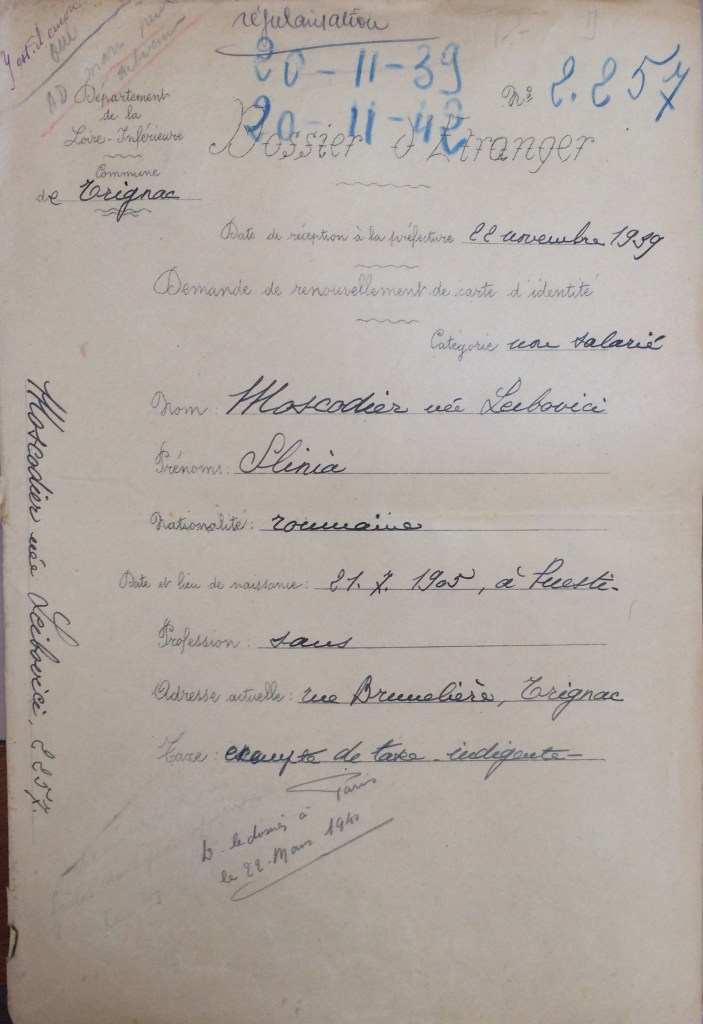 régularisation
Y est-il encore
20-11-39
Nº 2.257
20-11-42
Département
de la
Loire-Inférieure
Dossier d'Etranger
Commune
de Trignac
Date de réception à la préfecture 22 novembre 1939
Demande de renouvellement de carte d'identité
Catégorie non salarié
Nom: Moscodier née Leibovici
Prénoms: Slinia
Nationalité: roumaine
Date et lieu de naissance: 21.7.1905, à
Profession: sans
Adresse actuelle: rue Brunelière, Trignac
Taxe: exempte de taxe - indigente -
le 22 Mars 1940
Paris
Moscodier née Leibovici. 2257.